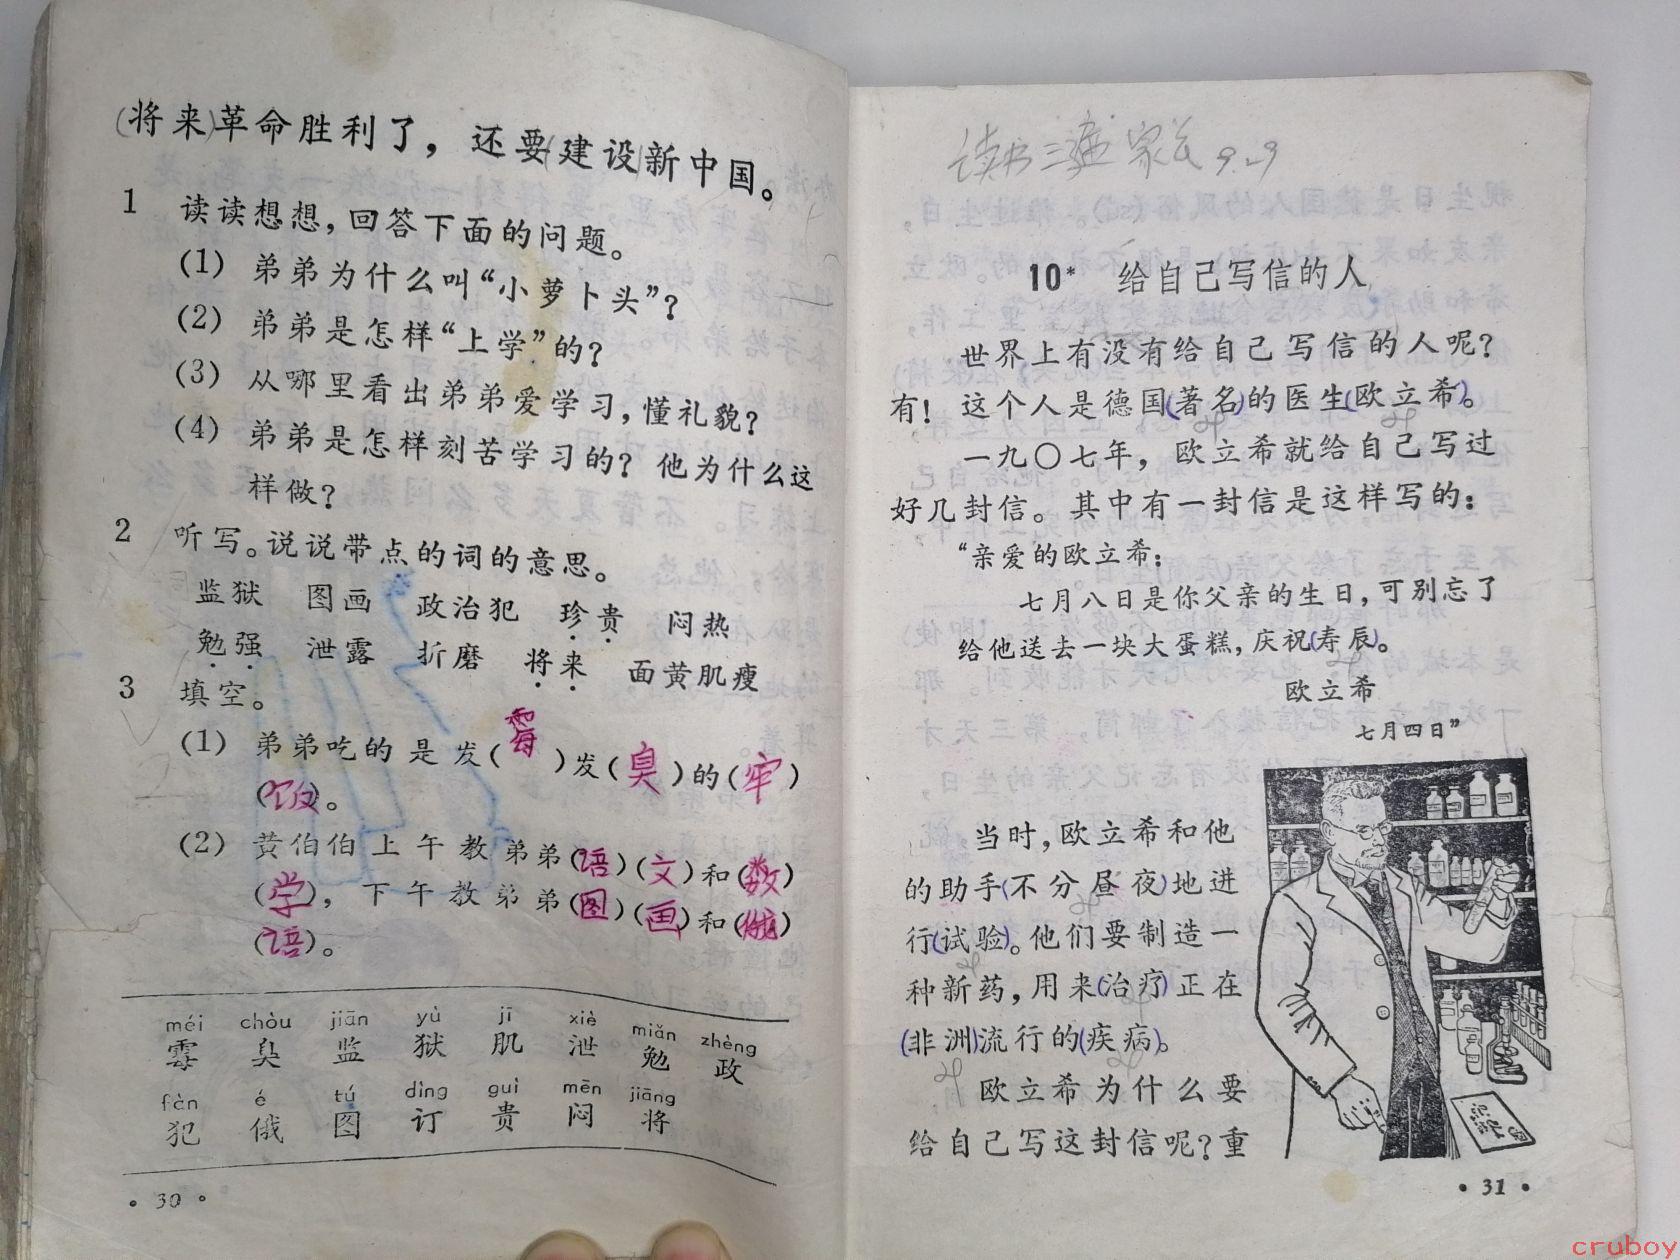 (将来)革命胜利了，还要(建设)新中国。
1 读读想想，回答下面的问题。
(1) 弟弟为什么叫“小萝卜头”？
(2) 弟弟是怎样“上学”的？
(3) 从哪里看出弟弟爱学习，懂礼貌？
(4) 弟弟是怎样刻苦学习的？他为什么这
样做？
2 听写。说说带点的词的意思。
监狱 图画 政治犯 珍贵 闷热
勉强 泄露 折磨 将来 面黄肌瘦
3 填空。
(1) 弟弟吃的是发(霉)发(臭)的(牢)
(饭)。
(2) 黄伯伯上午教弟弟(语)(文)和(数)
(学)，下午教弟弟(图)(画)和(俄)
(语)。
méi chòu jiān yù jī xiè miǎn zhèng
霉 臭 监 狱 肌 泄 勉 政
fàn é tú dìng guì mēn jiāng
犯 俄 图 订 贵 闷 将
• 30 •
读书三遍 家长 9.9
10* 给自己写信的人
世界上有没有给自己写信的人呢？
有！这个人是德国(著名)的医生(欧立希)。
一九〇七年，欧立希就给自己写过
好几封信。其中有一封信是这样写的：
“亲爱的欧立希：
七月八日是你父亲的生日，可别忘了
给他送去一块大蛋糕，庆祝(寿辰)。
欧立希
七月四日”
当时，欧立希和他
的助手(不分昼夜)地进
行(试验)。他们要制造一
种新药，用来(治疗)正在
(非洲)流行的(疾病)。
欧立希为什么要
给自己写这封信呢？重
• 31 •
cruboy